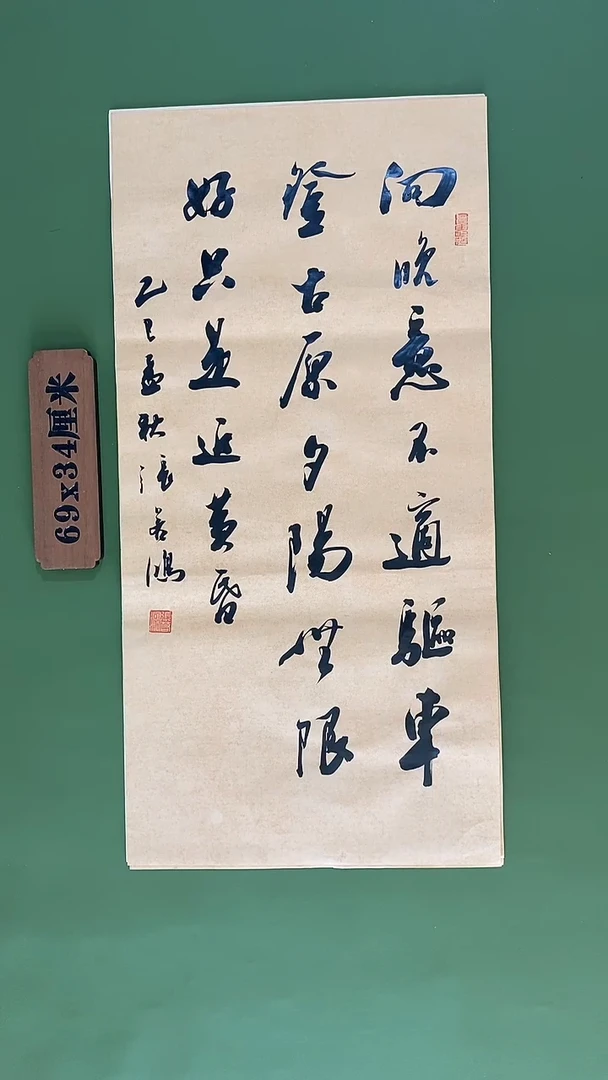 向晚意不適驅車
登古原夕陽無限
好只是近黄昏
乙巳孟秋張若鴻
69x34厘米